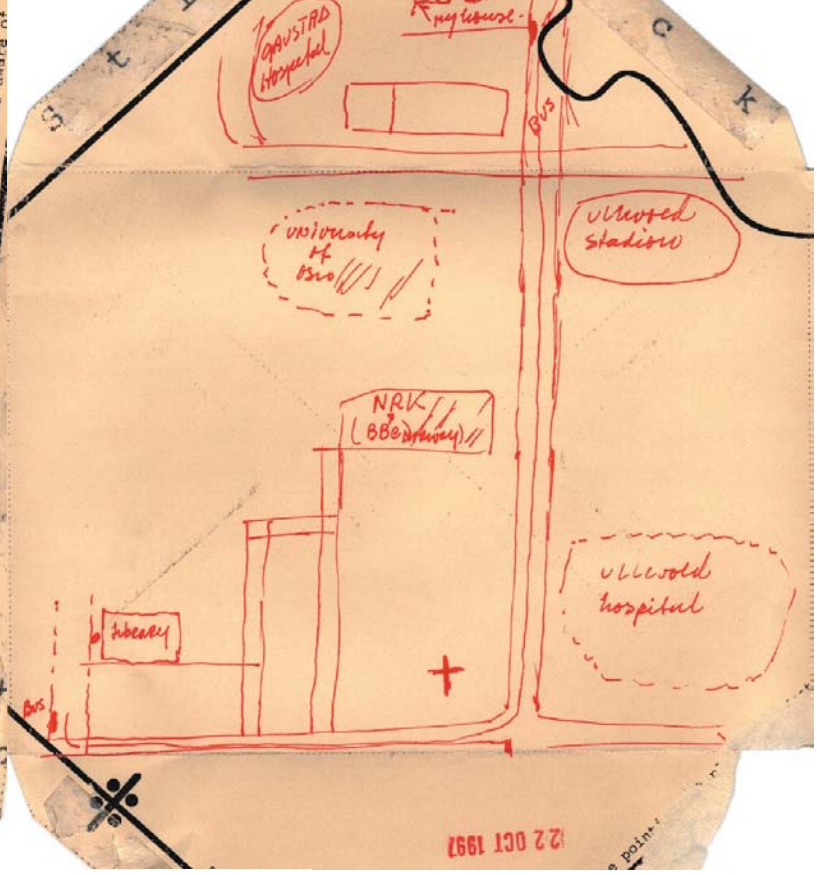 S t
c k
GAUSTAD
Hospital
my house.
BUS
University
of
Oslo
Ullevoed
Stadion
NRK
(BBC Norway)
Ullevold
hospital
Library
BUS
22 OCT 1997
e point